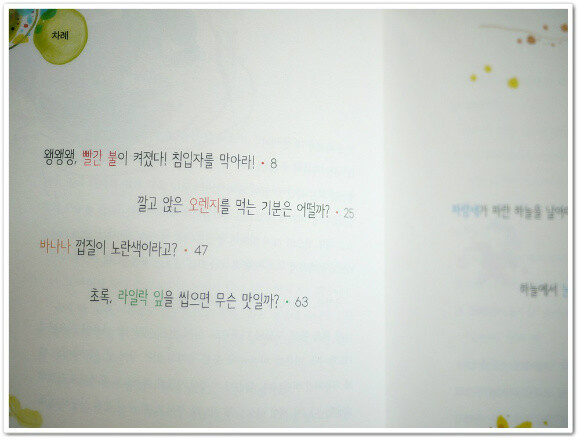 차례
왱왱왱, 빨간 불이 켜졌다! 침입자를 막아라! • 8
깔고 앉은 오렌지를 먹는 기분은 어떨까? • 25
바나나 껍질이 노란색이라고? • 47
초록, 라일락 잎을 씹으면 무슨 맛일까? • 63
파랑새가 파란 하늘을 날아
하늘에서